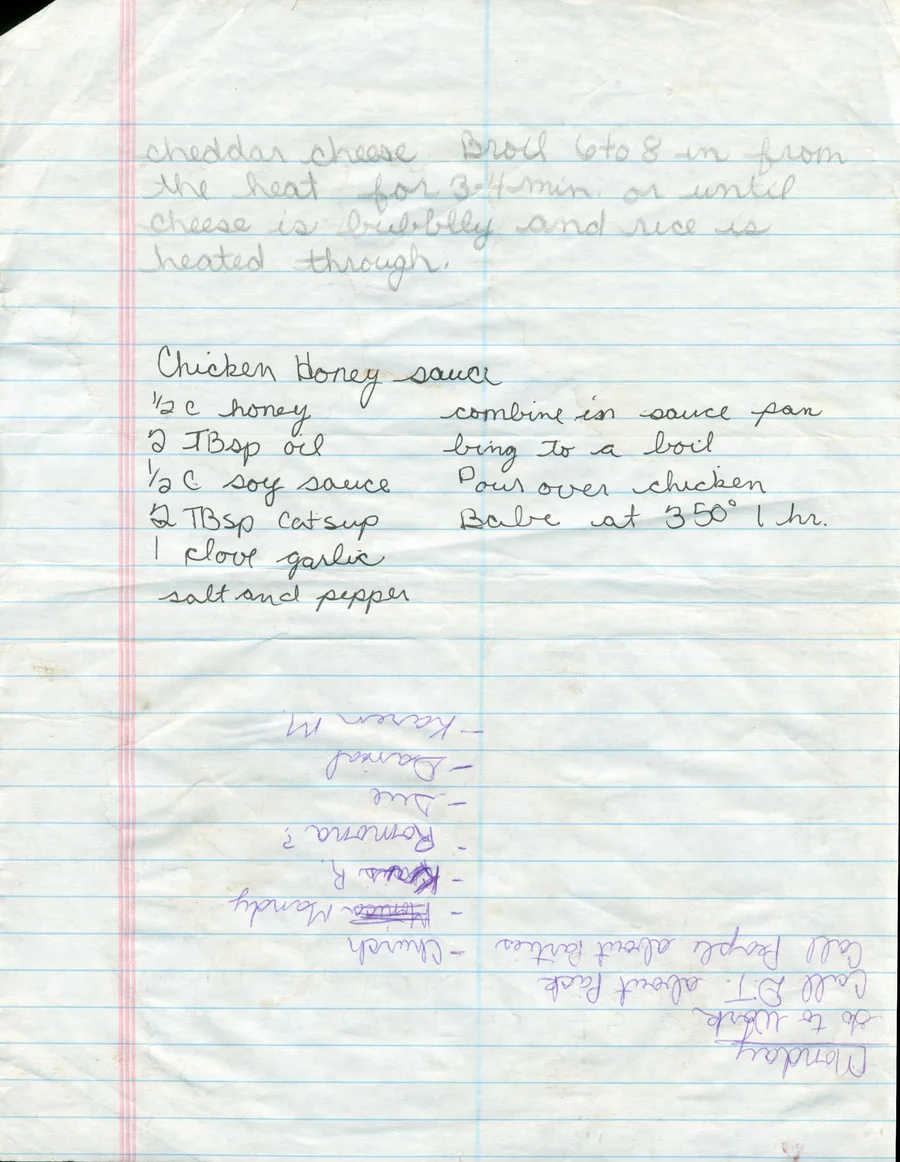 cheddar cheese. Broil 6 to 8 in from
the heat for 3-4 min. or until
cheese is bubblly and rice is
heated through.
Chicken Honey sauce
½ c honey
2 TBsp oil
½ C soy sauce
2 TBsp Catsup
1 clove garlic
salt and pepper
combine in sauce pan
bring to a boil
Pour over chicken
Babe at 350° 1 hr.
Monday
Go to Work
Call D.T. about Pick
Call People about Parties
- Church
- Monica Mandy
- R.
- Romona?
- Sue
- Danial
- Karen M